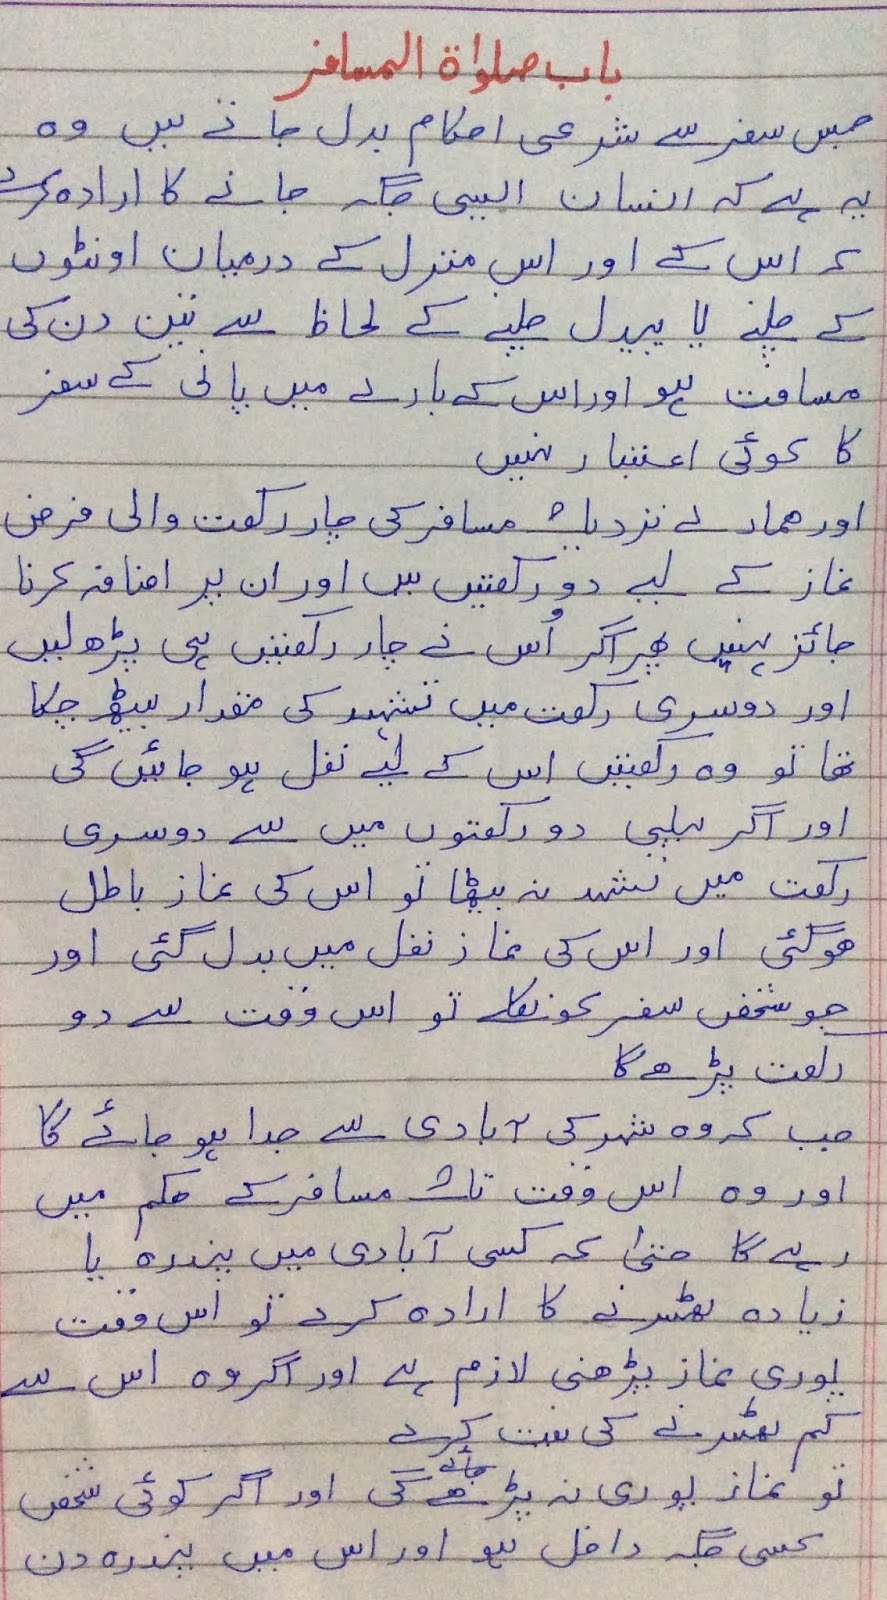 باب صلواۃ المسافر
جس سفر سے شرعی احکام بدل جاتے ہیں وہ
یہ ہے کہ انسان ایسی جگہ جانے کا ارادہ کرے
کہ اس کے اور اس منزل کے درمیان اونٹوں
کے چلنے یا پیدل چلنے کے لحاظ سے تین دن کی
مسافت ہو اور اس کے بارے میں پانی کے سفر
کا کوئی اعتبار نہیں
اور ہمارے نزدیک مسافر کی چار رکعت والی فرض
نماز کے لیے دو رکعتیں ہیں اور ان پر اضافہ کرنا
جائز نہیں پھر اگر اُس نے چار رکعتیں ہی پڑھ لیں
اور دوسری رکعت میں تشہد کی مقدار بیٹھ چکا
تھا تو وہ رکعتیں اس کے لیے نفل ہو جائیں گی
اور اگر پہلی دو رکعتوں میں سے دوسری
رکعت میں تشہد نہ بیٹھا تو اس کی نماز باطل
ہوگئی اور اس کی نماز نفل میں بدل گئی اور
جو شخص سفر کو نکلے تو اس وقت سے دو
رکعت پڑھے گا
جب کہ وہ شہر کی آبادی سے جدا ہو جائے گا
اور وہ اس وقت تک مسافر کے حکم میں
رہے گا حتیٰ کہ کسی آبادی میں پندرہ یا
زیادہ ٹھہرنے کا ارادہ کرے تو اس وقت
پوری نماز پڑھنی لازم ہے اور اگر وہ اس سے
کم ٹھہرنے کی نیت کرے
تو نماز پوری نہ پڑھے جائے گی اور اگر کوئی شخص
کسی جگہ داخل ہو اور اس میں پندرہ دن